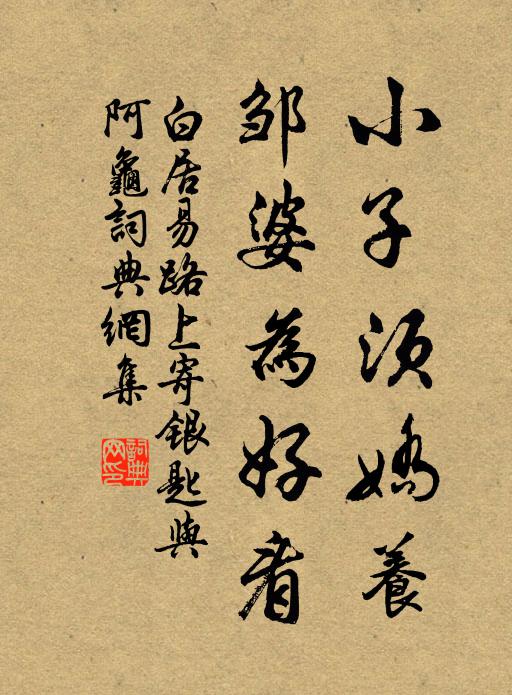 小子須嬌養
邹婆為好看
白居易路上寄銀匙與
阿龜詞典網集
詞典网印